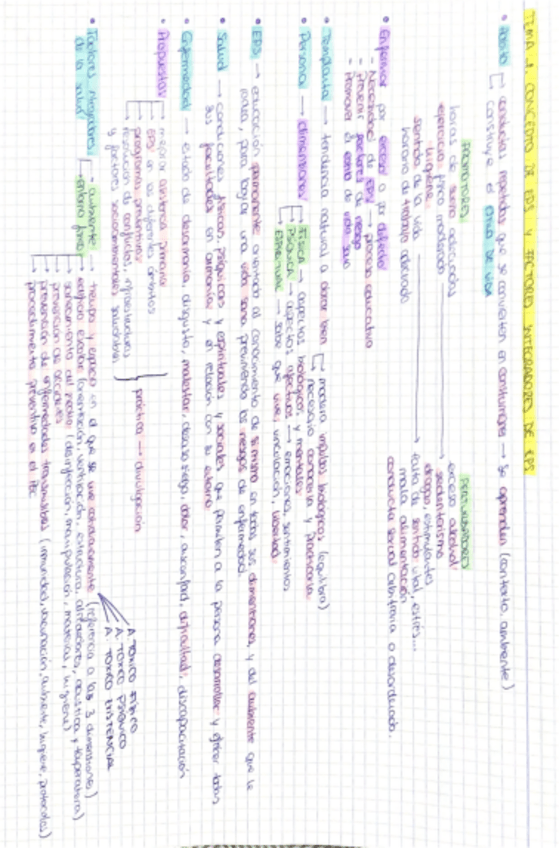 TEMA 1. CONCEPTO DE EPS Y FACTORES INTEGRADORES DE EPS
• Hábito → conductas repetidas que se convierten en costumbres → se aprenden (contexto, ambiente)
construye el estilo de vida
PROMOTORES
PERTURBADORES
horas de sueño adecuadas
exceso alcohol
ejercicio físico moderado
sedentarismo
higiene
drogas, estimulantes
sentido de la vida
falta de sentido vital, estrés...
horario de trabajo adecuado
mala alimentación
conducta sexual arbitraria o desordenada.
• Enfermar por exceso o por defecto
- Necesidad de EPS → proceso educativo
- Prevenir factores de riesgo
- Promover el estilo de vida sano
• Templanza → tendencia natural a
modera impulsos biológicos (equilibrio)
necesario conocerla y practicarla
• Persona → dimensiones
FÍSICA → aspectos biológicos y mentales
PSÍQUICA → aspectos afectivos → emociones, sentimientos
ESPIRITUAL → sabe que vive, vinculación, libertad
• EPS → educación permanente orientada al conocimiento de sí mismo en todas sus dimensiones, y del ambiente que le
rodea, para lograr una vida sana previniendo los riesgos de enfermedad
• Salud → condiciones físicas, psíquicas y espirituales y sociales que permiten a la persona desarrollar y ejercer todas
sus facultades en armonía y en relación con lo externo
• Enfermedad → estado de desarmonía, disgusto, malestar, desasosiego, dolor, disconfort, dificultad, discapacitación
• Propuestas
mejorar asistencia primaria
EPS en los diferentes ámbitos
programas preventivos
resolución de conflictos, infraestructuras
y factores socioambientales saludables
práctica → divulgación
• Factores integradores
de la salud
ambiente → tiempo y espacio en el que se vive cotidianamente (referencia a las 3 dimensiones)
A. TÓXICO FÍSICO
A. TÓXICO PSÍQUICO
A. TÓXICO ESPIRITUAL
entorno físico
edificio escolar (orientación, ventilación, estructura, acústica y temperatura)
saneamiento del medio (desinfección, manipulación, materias, higiene)
prevención de accidentes
prevención de enfermedades transmisibles (inmunidad, vacunación, ambiente, higiene, protocolos)
procedimiento preventivo en el